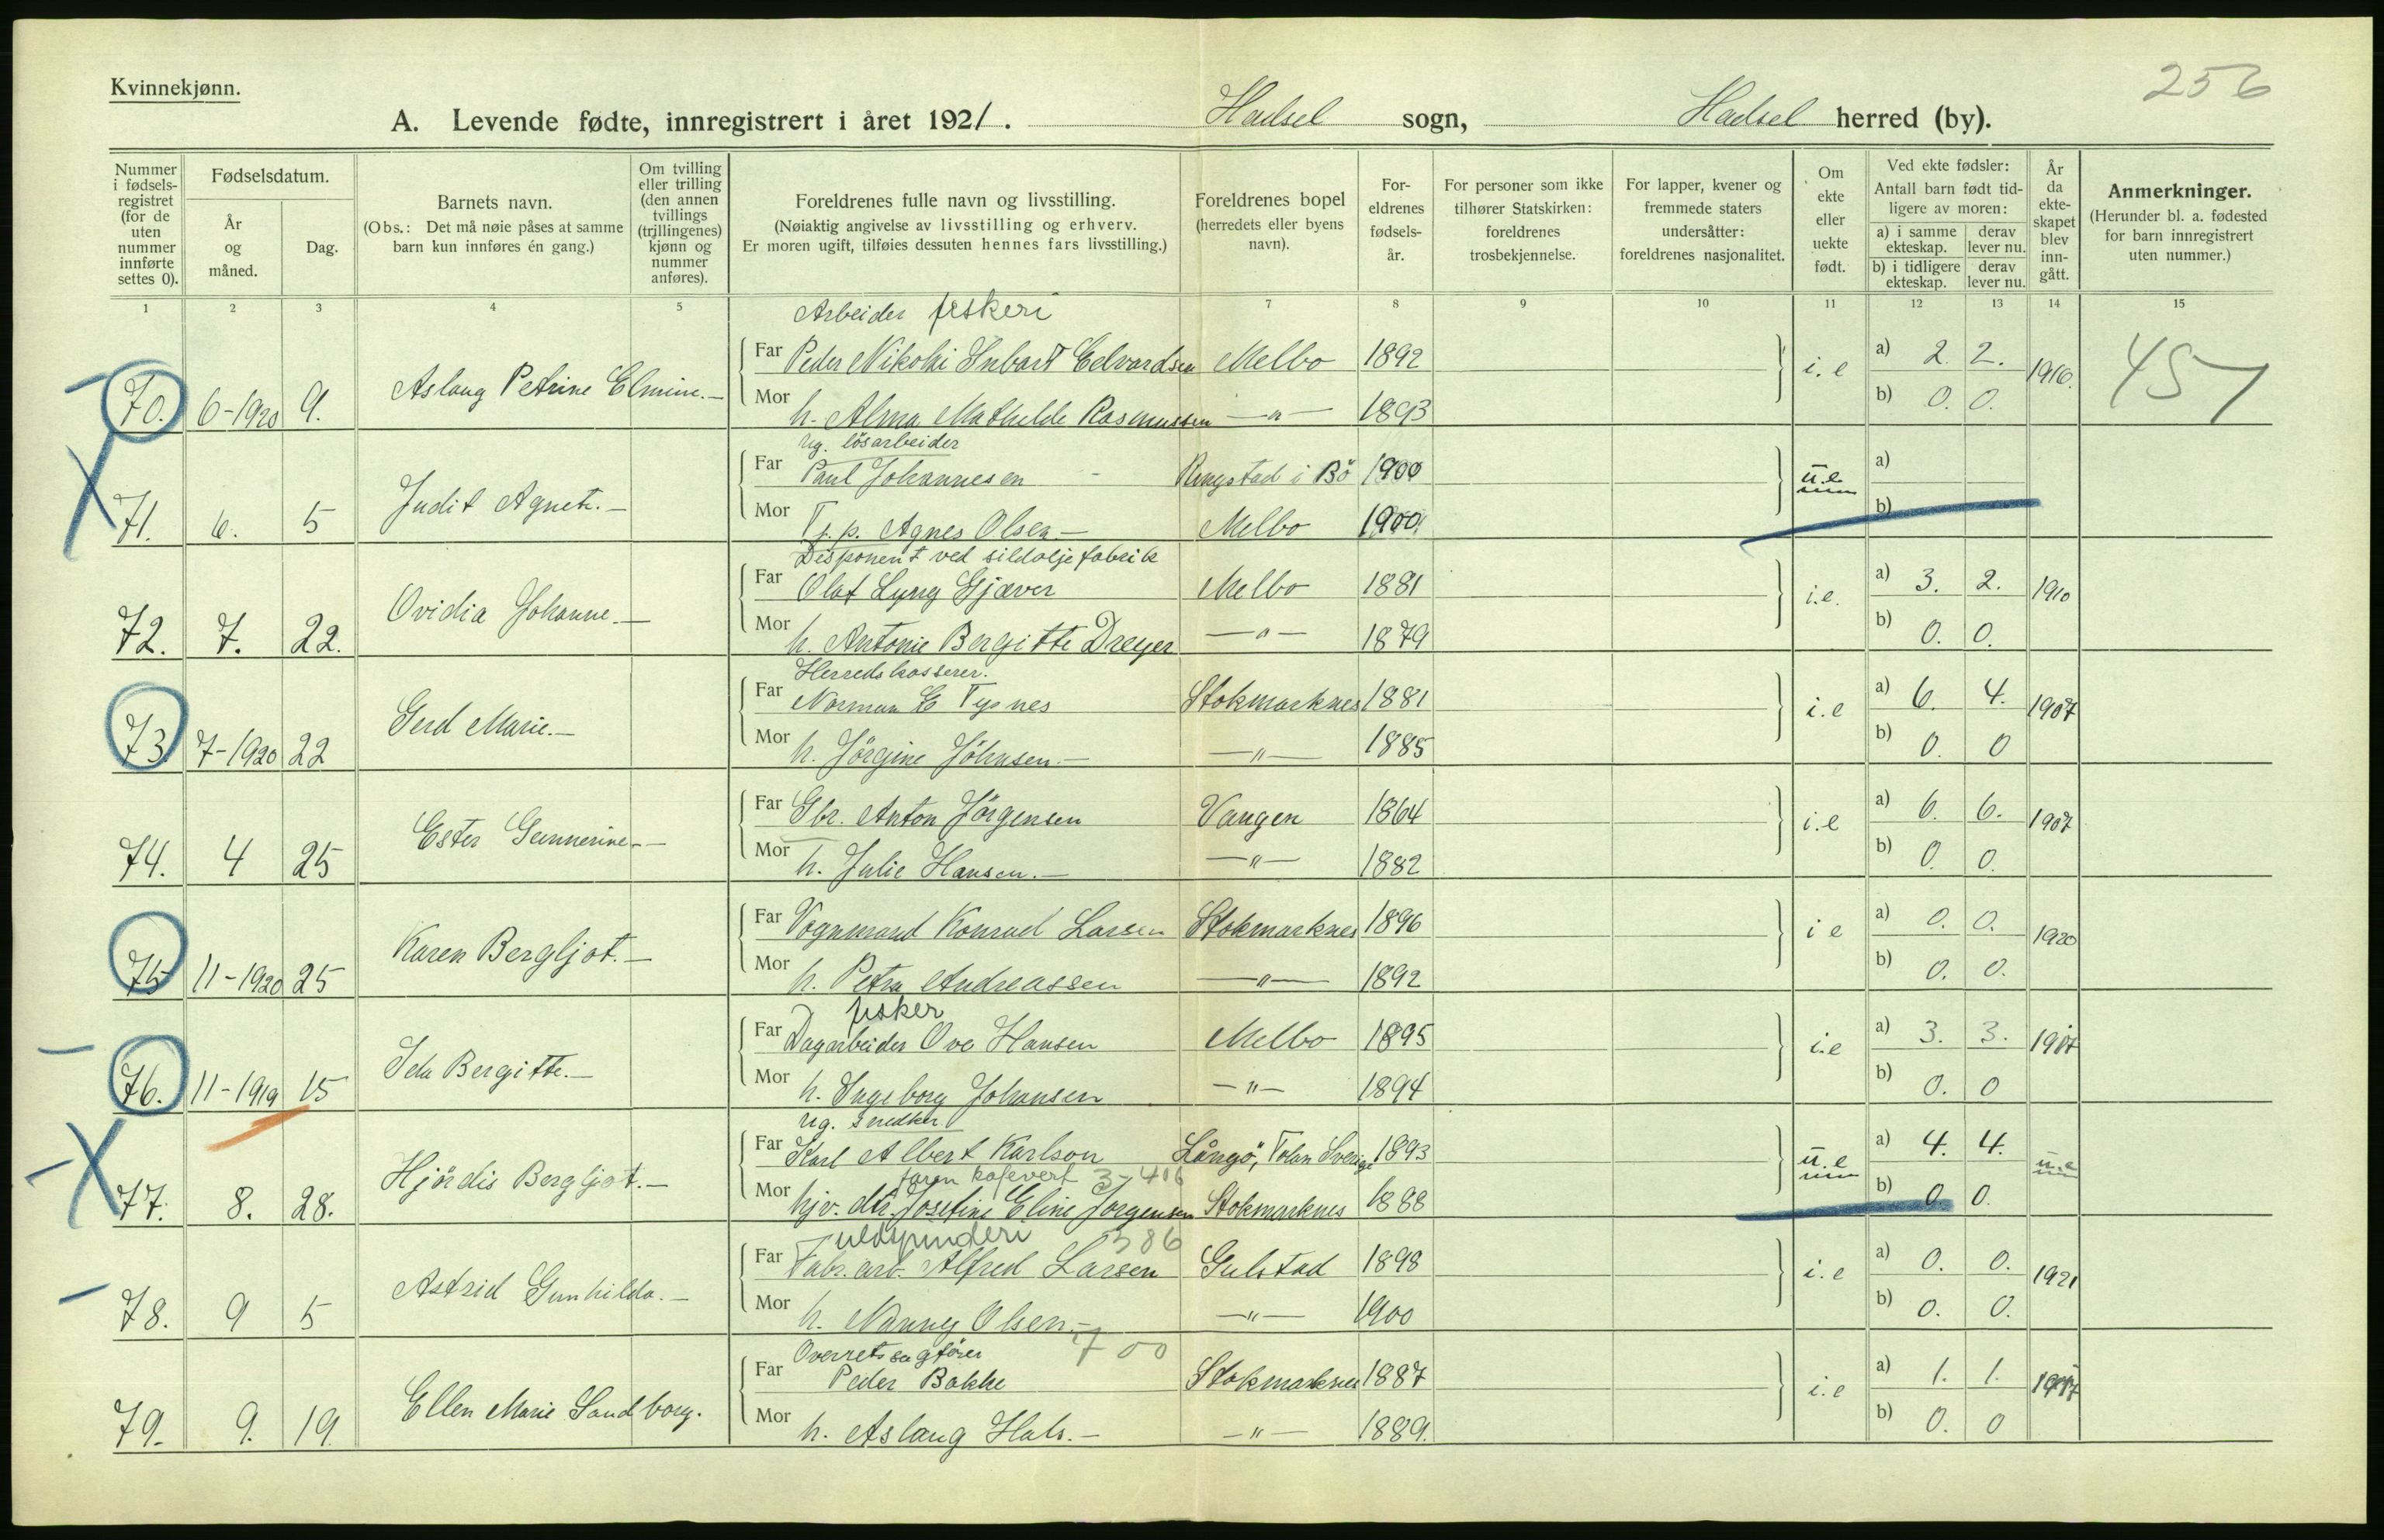 Kvinnekjønn.
256
A. Levende fødte, innregistrert i året 1921. Hadsel sogn, Hadsel herred (by).
Nummer i fødselsregistret (for de uten nummer innførte settes 0).
Fødselsdatum.
År og måned.
Dag.
Barnets navn.
(Obs.: Det må nøie påses at samme barn kun innføres én gang.)
Om tvilling eller trilling (den annen tvillings (trillingenes) kjønn og nummer anføres).
Foreldrenes fulle navn og livsstilling.
(Nøiaktig angivelse av livsstilling og erhverv.
Er moren ugift, tilføies dessuten hennes fars livsstilling.)
Foreldrenes bopel (herredets eller byens navn).
Foreldrenes fødselsår.
For personer som ikke tilhører Statskirken: foreldrenes trosbekjennelse.
For lapper, kvener og fremmede staters undersåtter: foreldrenes nasjonalitet.
Om ekte eller uekte født.
Ved ekte fødsler:
Antall barn født tidligere av moren:
a) i samme ekteskap. derav lever nu.
b) i tidligere ekteskap. derav lever nu.
År da ekteskapet blev inngått.
Anmerkninger.
(Herunder bl. a. fødested for barn innregistrert uten nummer.)
1 2 3 4 5 7 8 9 10 11 12 13 14 15
Arbeider fiskeri
Far Peder Nikolai Hubart Edvardsen Melbo 1892 a) 2. 2.
70. 6-1920 9. Aslaug Petrine Elmine.- i.e 1916. 457
Mor h. Alma Mathilde Rasmussen -"- 1893 b) 0. 0.
ug. løsarbeider
Far Paul Johannesen - Ringstad i Bö 1900 a)
71. 6. 5 Judit Agnete.- u.e
Mor Tj.p. Agnes Olsen- Melbo 1900. b)
Disponent ved sildoljefabrik
Far Olaf Lyng Gjæver Melbo 1881 a) 3. 2.
72. 7. 22. Ovidia Johanne.- i.e. 1910
Mor h. Antonie Bergitte Dreyer -"- 1879 b) 0. 0.
Herredskasserer.
Far Norman E Tysnes Stokmarknes 1881 a) 6. 4.
73. 7-1920 22 Gerd Marie.- i.e 1907
Mor h. Jörgine Johnsen.- -"- 1885 b) 0. 0
Far Gbr. Anton Jörgensen Vangen 1864 a) 6. 6.
74. 4 25 Ester Gunnerine.- i.e 1907
Mor h. Julie Hansen.- -"- 1882 b) 0. 0.
Far Vognmand Konrad Larsen Stokmarknes 1896 a) 0. 0.
75 11-1920 25 Karen Bergljot.- i e 1920
Mor h. Petra Andreassen -"- 1892 b) 0. 0.
fisker
Far Dagarbeider Ove Hansen Melbo 1895 a) 3. 3.
76. 11-1919 15 Ida Bergitte.- i.e 1917
Mor h. Ingeborg Johansen -"- 1894 b) 0. 0
ug. snedker
Far Karl Albert Karlson Långö, Sverige 1893 a) 4. 4.
faren kafevert 3-406
77. 8. 28. Hjördis Bergljot.- u.e u.e
Mor hjv. dtr. Josefine Eline Jorgensen Stokmarknes 1888 b) 0 0.
uldspinderi 386
Far Fabr. arb. Alfred Larsen Gulstad 1898 a) 0. 0.
78. 9 5 Astrid Gunhilda.- i.e 1921
Mor h. Nanny Olsen.- -"- 1900 b) 0. 0.
700
Overretssagfører
Far Peder Bakke Stokmarknes 1887 a) 1. 1.
79. 9. 19. Ellen Marie Sandborg. i.e 1917
Mor h. Aslaug Hals.- -"- 1889. b) 0. 0